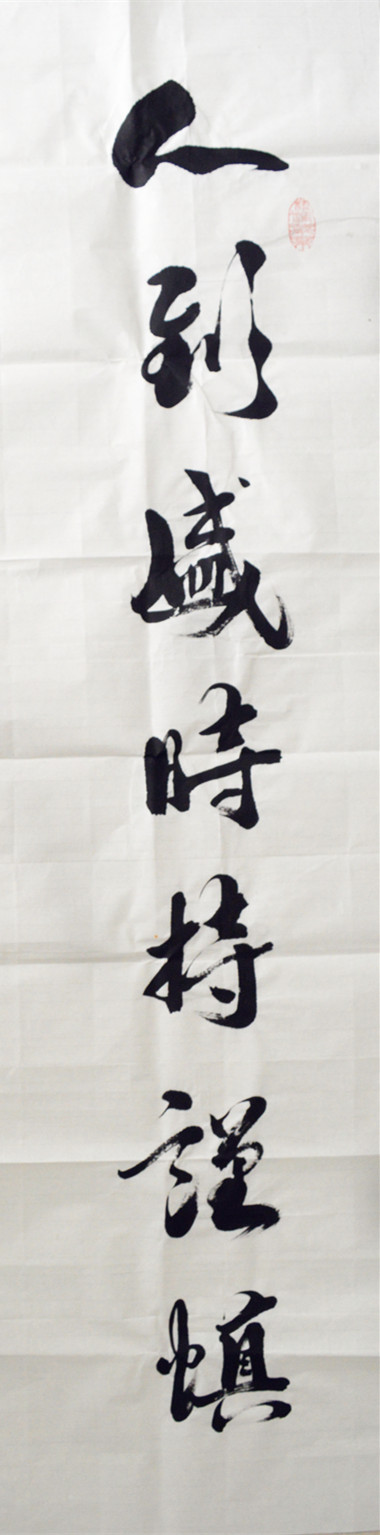 人到盛時持謹慎